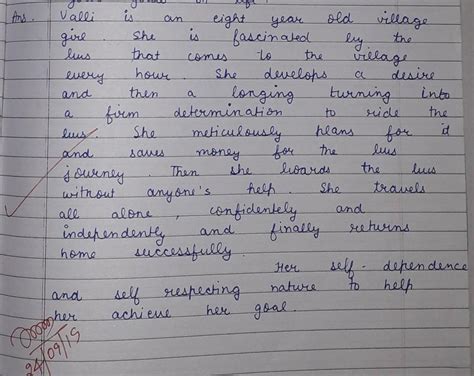 Ans. Valli is an eight year old village
girl. She is fascinated by the
bus that comes to the village
every hour. She develops a desire
and then a longing turning into
a firm determination to ride the
bus. She meticulously plans for it
and saves money for the bus
journey. Then she boards the bus
without anyone's help. She travels
all alone, confidentely and
independently and finally returns
home successfully.
Her self-dependence
and self respecting nature to help
her achieve her goal.
24/09/19